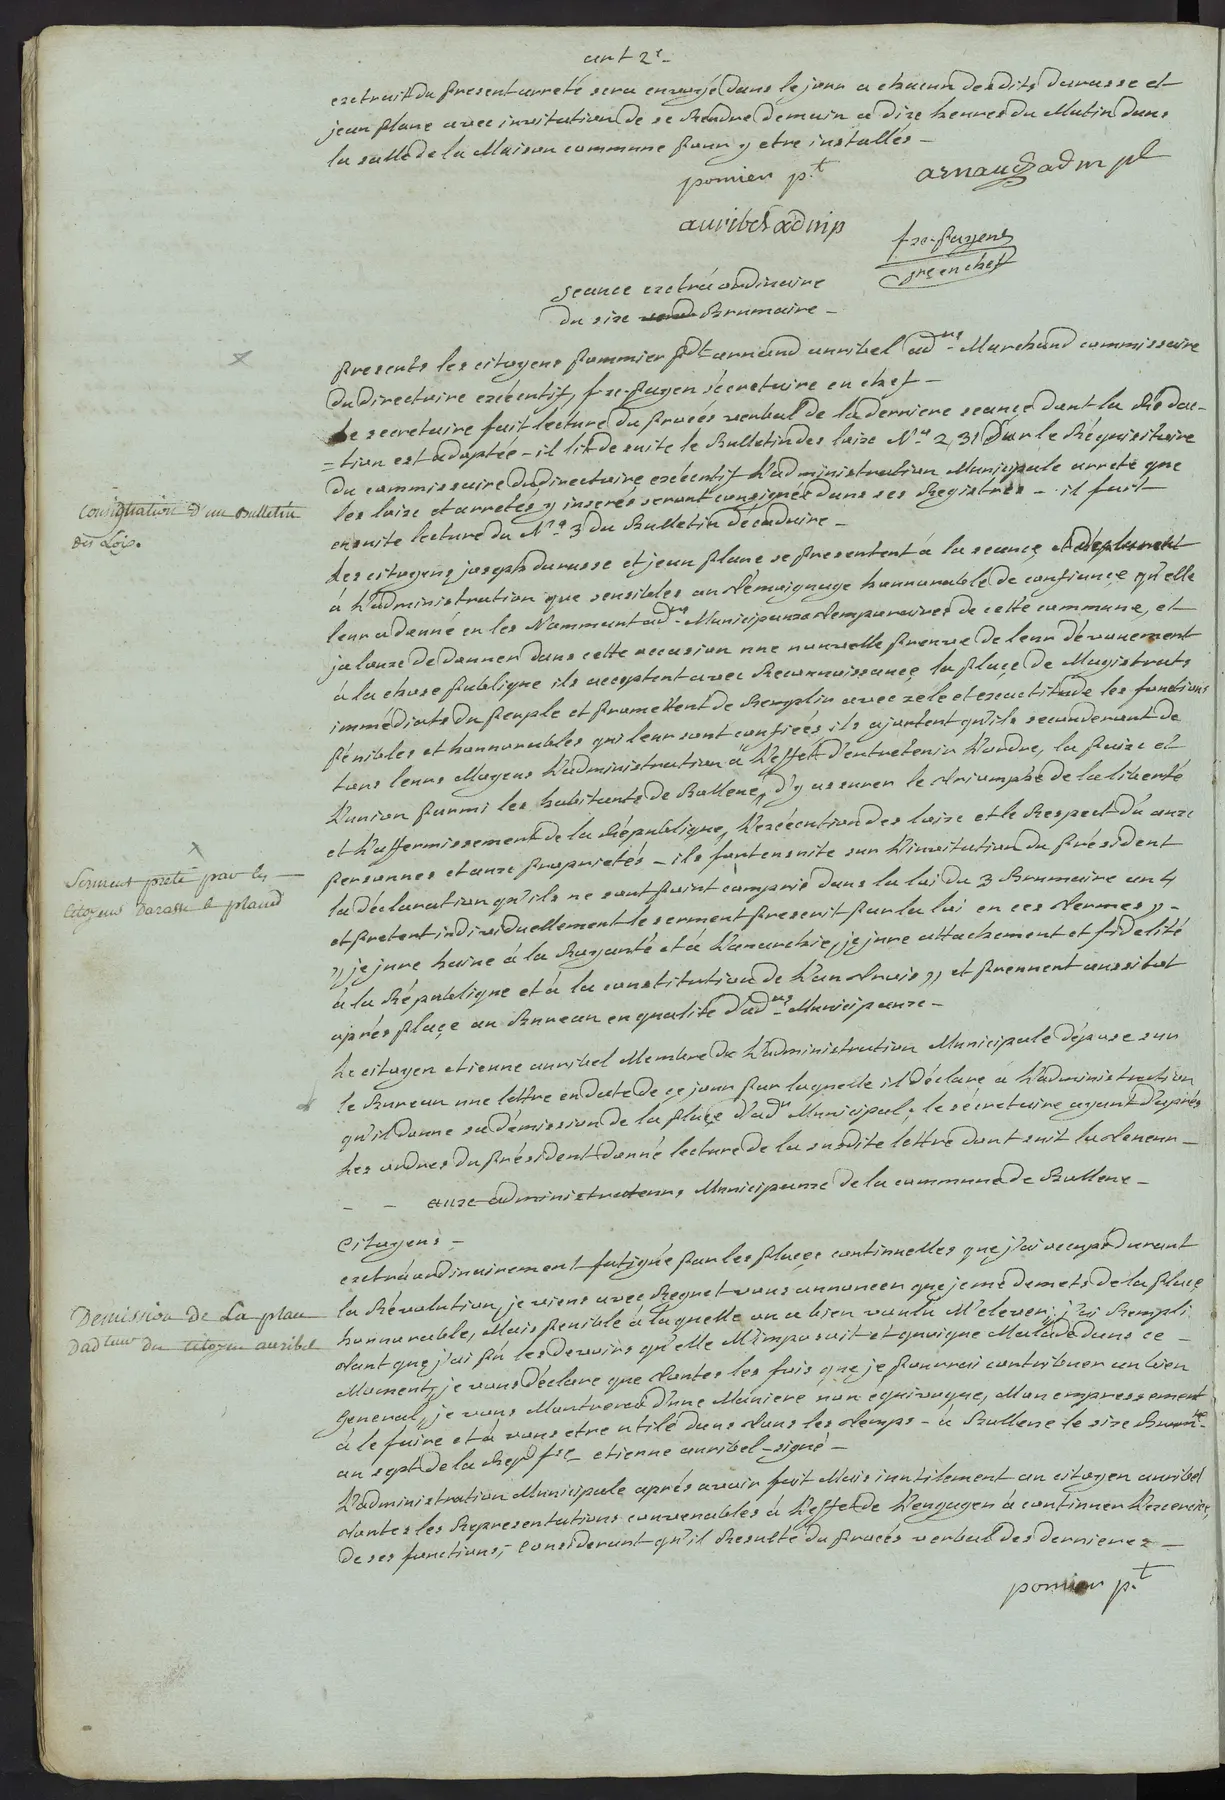 art 2e.
extrait du present arreté sera envoyé dans le jour a chacun desdits darasse et
jean plane avec invitation de se Rendre demain a dix heures du Matin dans
la salle de la Maison commune pour y etre installés –
pomier p.t
arnaud adm pl
auribel adm p
fx. payen
sre en chef
seance extráordinaire
du six Brumaire –
presents les citoyens pommier pdt arnaud auribel adurs Marchand commissaire
du Directoire exécutif, fx. payen sécretaire en chef –
Le secretaire fait lecture du procés verbal de la derniere seance dont la Rédac-
=tion est adoptée – il lit de suite le Bulletin des loix N.° 231 Sur le Réquisitoire
du commissaire du directoire exécutif L'administration Municipale arrete que
les loix et arretés y inserés seront consignés dans ses Registres – il fait
ensuite lecture du N.° 3 du Bulletin décadaire –
Consignation d'un Bulletin
des Loix.
Les citoyens joseph darasse et jean plane se presentent á la seance et déclarent
á L'administration que sensibles au témoignage honnorable de confiance qu'elle
leur a donné en les Nommant adurs Municipaux temporaires de cette commune, et
jaloux de donner dans cette occasion une nouvelle preuve de leur dévouement
á la chose publique ils acceptent avec Reconnoissance la place de Magistrats
immédiats du peuple et promettent de Remplir avec zele et exactitude les fonctions
pénibles et honnorables qui leur sont confiées, ils ajoutent qu'ils seconderont de
tous leurs Moyens L'administration á L'effet d'entretenir L'ordre, la paix et
L'union parmi les habitants de Bollene, d'y assurer le triomphe de la liberté
et L'affermissement de la République, L'exécution des loix et le Respect dû aux
personnes et aux proprietés – ils font ensuite sur L'invitation du président
Serment preté par les
Citoyens Darasse & pland
la déclaration qu'ils ne sont point compris dans la loi du 3 Brumaire an 4
et pretent individuellement le serment prescrit par la loi en ces termes „ –
„ je jure haine á la Royauté et á L'anarchie, je jure attachement et fidelité
á la République et á la constitution de L'an trois „ et prennent aussitot
aprés place au Bureau en qualité d'adurs Municipaux –
Le citoyen etienne auribel Membre de L'administration Municipale dépose sur
le Bureau une lettre en date de ce jour par laquelle il déclare a L'administration
qu'il donne sa démission de la place d'adur Municipal; le sécretaire ayant d'aprés
Les ordres du président donné lecture de la susdite lettre dont suit la teneur –
– – aux administrateurs Municipaux de la commune de Bollene –
Citoyens –
extráordinairement fatigué par les places continuelles que j'ai occupé durant
la Révolution, je viens avec Regret vous annoncer que je me demets de la place
honnorable, Mais penible á laquelle on a bien voulu M'elever; j'ai Rempli
Demission de La place
Dadteur du citoyen auribel
tant que j'ai pû les devoirs qu'elle M'imposait et quoique Malade dans ce –
Moment, je vous déclare que toutes les fois que je pourrai contribuer au bien
general, je vous Montrerai d'une Maniere non equivoque, Mon empressement
á le faire et á vous etre utile dans tous les temps – á Bollene le six Brumre
an sept de la Repe fse etienne auribel – signé –
L'administration Municipale aprés avoir fait Mais inutilement au citoyen auribel
toutes les Representations convenables á L'effet de L'engager á continuer L'exercice
de ses fonctions; – Considerant qu'il Resulte du procés verbal des dernieres –
pomier p.t